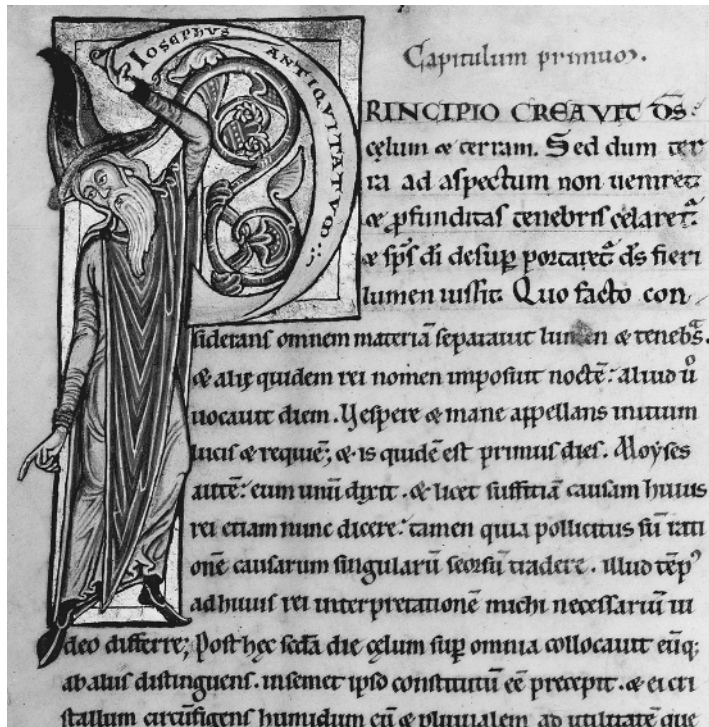 IOSEPHUS ANTIQVITATVM
Capitulum primuʒ.
PRINCIPIO CREAVIT D̄S.
cęlum & terram. Sed dum ter
ra ad aspectum non ueniret;
& ꝓfunditas tenebris celaret᷑.
& sp̄s di desup portaret᷑ d̄s fieri
lumen iussit. Quo facto con
siderans omnem materiā separauit lumen & tenebs᷑.
& alię quidem rei nomen imposuit noctē: aliud uͦ
uocauit diem. Uespere & mane appellans initium
lucis & requiē; & is quidē est primus dies. Moyses
autē: eum unū dixit. & licet suffitiā causam huius
rei etiam nunc dicere: tamen quia pollicitus sū rati
onē causarum singularū seorsū tradere. illud tēpꝰ
ad huius rei interpretationē michi necessariū ui
deo differre; Post hęc scđa die cęlum suꝑ omnia collocauit eūq;
ab aliis distinguens. in semet ipso constitutū eē precepit. & ei cri
stallum circūfigens humidum eū & pluuialem ad utilitatē que